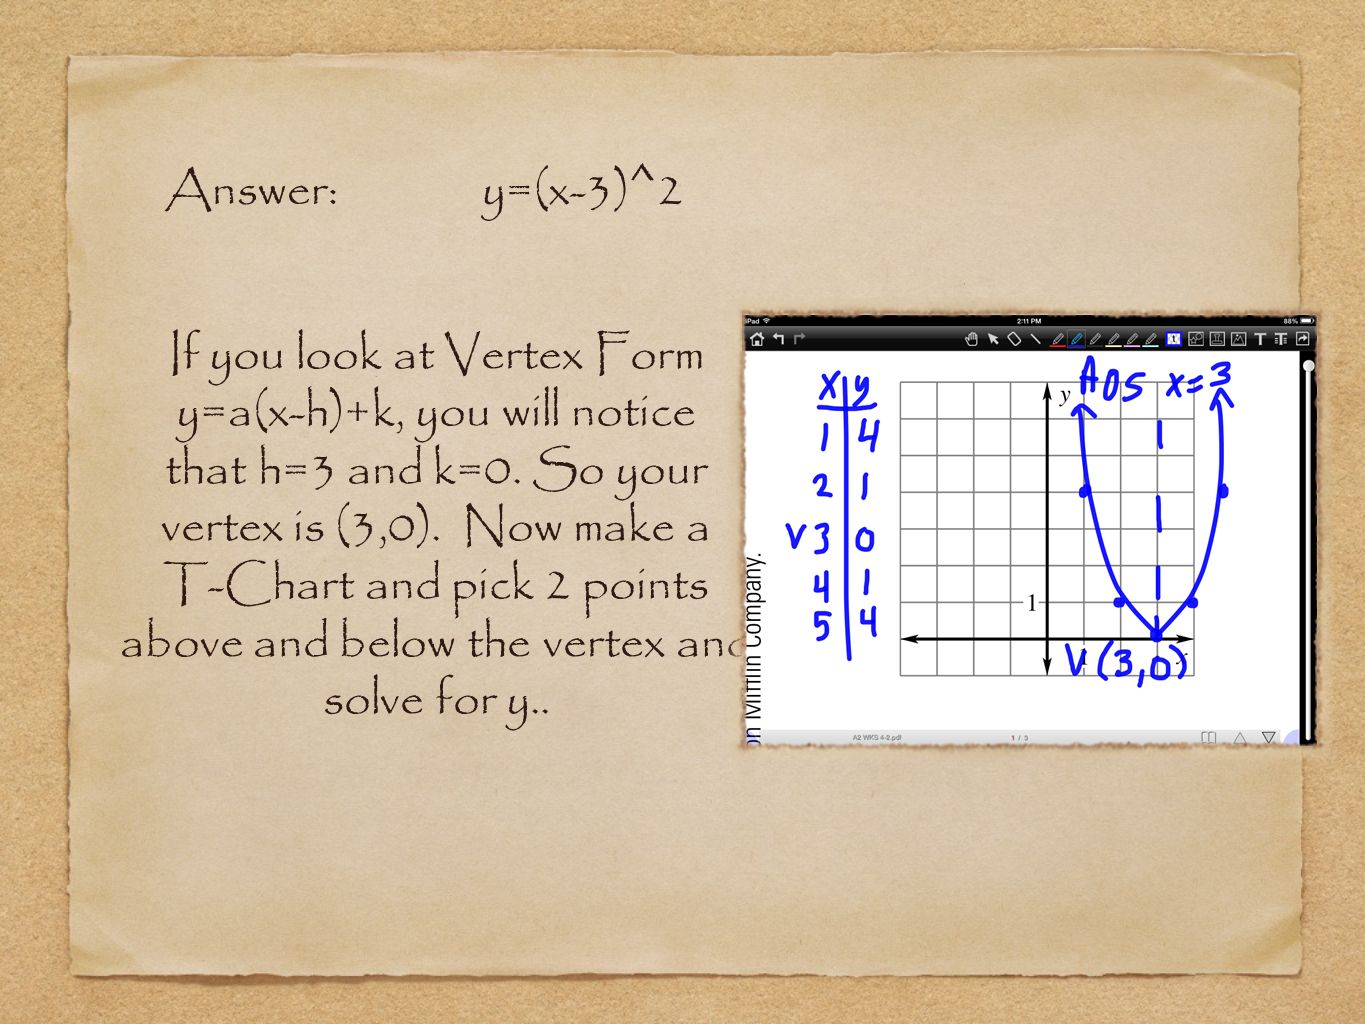 Answer: y=(x-3)^2
If you look at Vertex Form
y=a(x-h)+k, you will notice
that h=3 and k=0. So your
vertex is (3,0). Now make a
T-Chart and pick 2 points
above and below the vertex and
solve for y..
iPad 2:11 PM 88%
x y
1 4
2 1
V 3 0
4 1
5 4
AOS x=3
y
1
V (3,0)
on Mifflin Company.
A2 WKS 4-2.pdf 1 / 3